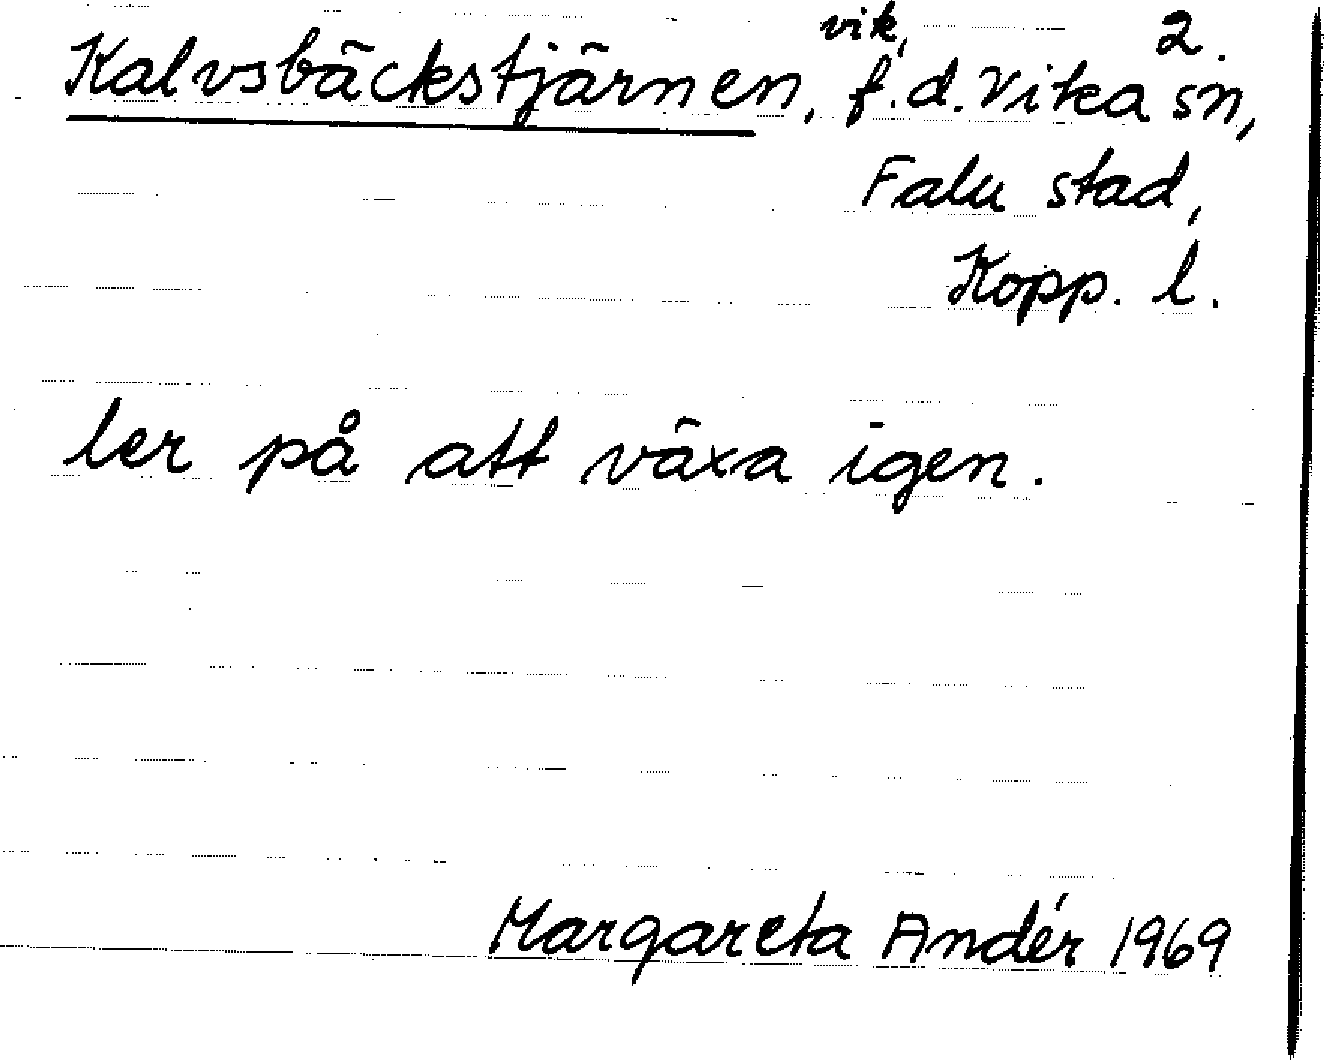 Kalvsbäckstjärnen, vik, f.d. Vika sn, 2.
Falu stad,
Kopp. l.
ler på att växa igen.
Margareta Andér 1969